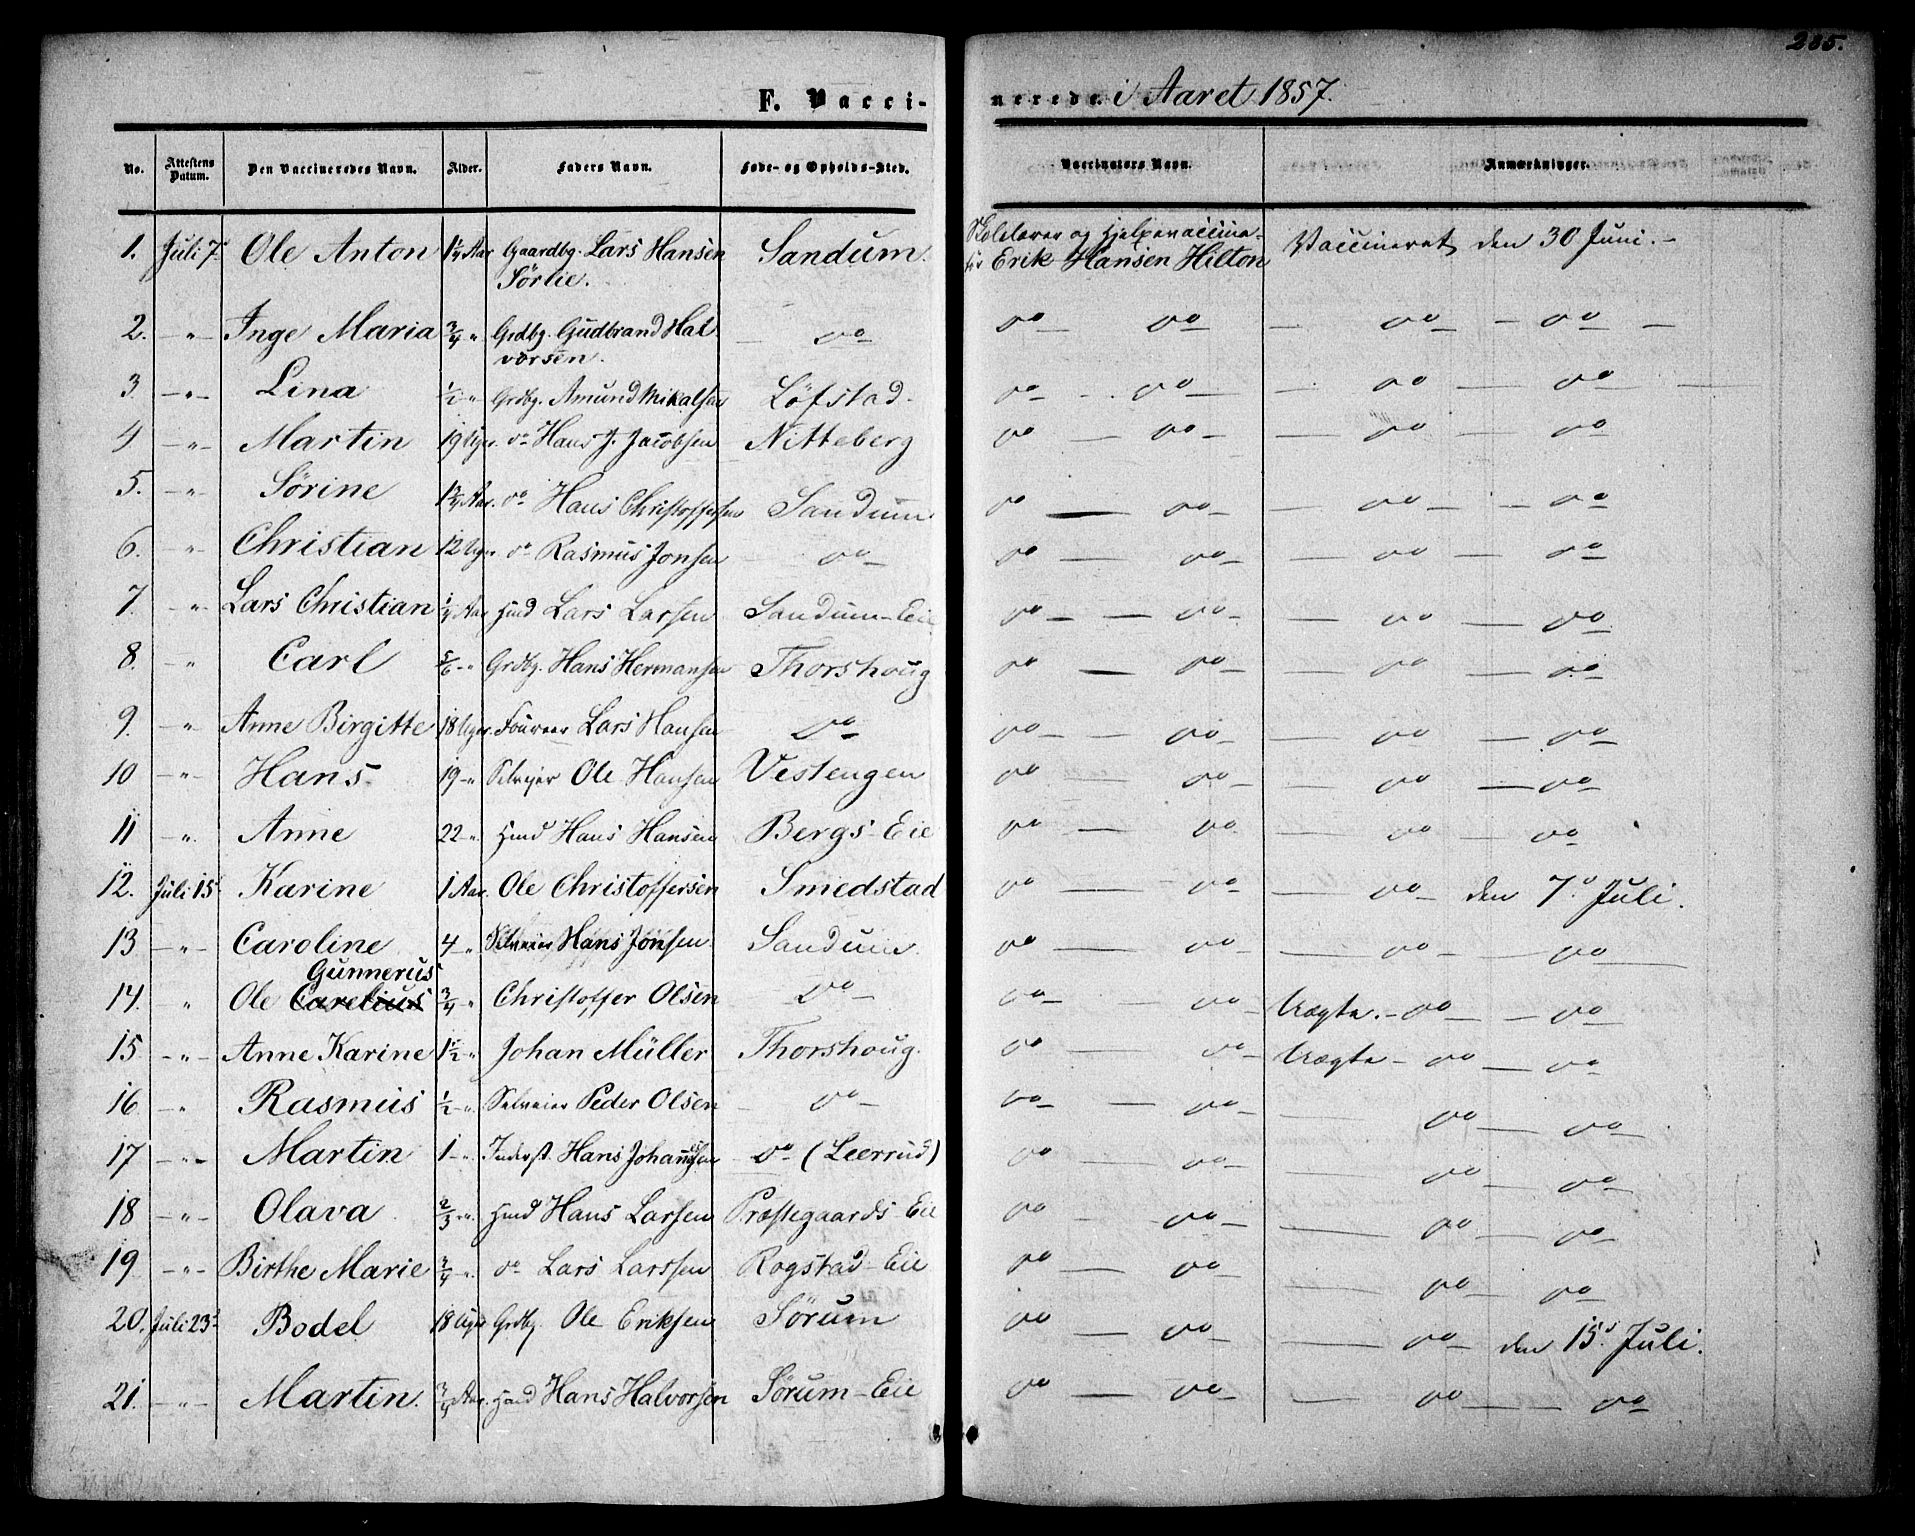 285.
F. Vaccinerede. i Aaret 1857.
No. Attestens Datum. Den Vaccineredes Navn. Alder. Faders Navn. Føde- og Opholds-Sted. Vaccinators Navn. Anmærkninger.
1. Juli 7 Ole Anton 1 1/4 Aar Gaardbg. Lars Hansen Sørlie. Sandum. Skolelærer og Hjelpevaccinatør Erik Hansen Hilton Vaccineret den 30 Juni. -
2. -"- Inge Maria 3/4 " Grdbg. Gudbrand Halvorsen. - do - do - do - do - do -
3 -"- Lina 1/2 " Grdbg. Amund Mikalsen Løfstad - do - do - do - do -
4 -"- Martin 19 Uger. do Hans J. Jacobsen Nitteberg do - do - do - do
5. -"- Sørine Aar. do Hans Christoffersen Sandum do - do - do - do
6. -"- Christian 12 Uger do Rasmus Jonsen - do - do - do - do - do
7. -"- Lars Christian 1/4 Aar Hmd Lars Larsen Sandum-Eie do - do - do - do
8. -"- Carl 5/6 -" Grdbg. Hans Hermansen Thorshoug do - do - do - do
9. -"- Anne Birgitte 18 Uger. Lars Hansen do do - do - do - do
10 -"- Hans 19 -" Selveier Ole Hansen Vestengen do - do - do - do
11 -"- Anne 22 -" Hmd Hans Hansen Bergs-Eie do - do - do - do
12. Juli 15 Karine 1 Aar. Ole Christoffersen Smedstad do - do - do - den 7de Juli.
13 -"- Caroline 4 -" Selveier Hans Jonsen Sandum. do - do - do - do
Gunnerus
14. " Ole Carelius 3/4 -" Christoffer Olsen do - do - do - Uægte. - do - do
15 -"- Anne Karine 1 1/2 " Johan Müller Thorshoug. do - do - Uægte - do - do
16 -"- Rasmus 1/2 -" Selveier Peder Olsen - do - do - do - do - do
17 -"- Martin 1 -" Inderst. Hans Johannesen do (Leerrud) do - do - do - do
18 -"- Olava 2/3 -" Hmd Hans Larsen Præstegaards-Eie do - do - do - do
19 -"- Birthe Marie 3/4 -" do Lars Larssen Rogstad-Eie do - do - do - do
20. Juli 23 Bodel 18 Uger Grdbg Ole Eriksen Sørum do - do - do - den 15de Juli.
21. -"- Martin. 3/4 Aar. Hmd Hans Halvorsen Sørum-Eie do - do - do - do